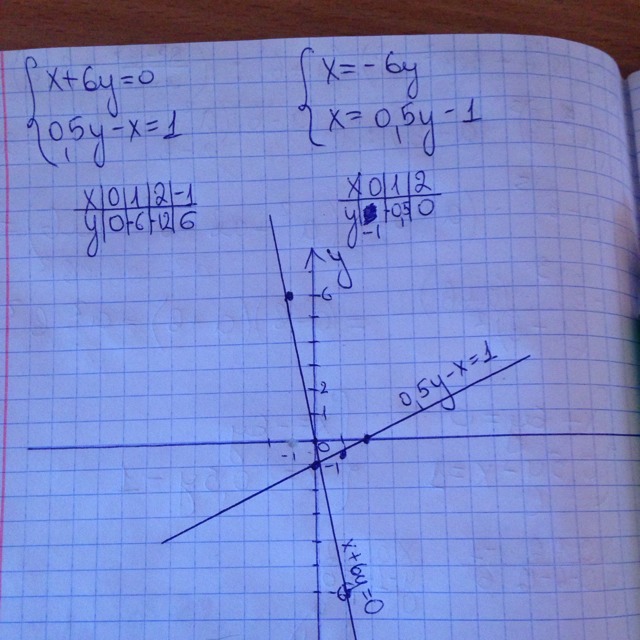 x+6y=0
0,5y-x=1
x=-6y
x=0,5y-1
x|0|1|2|-1
y|0|-6|-12|6
x|0|1|2
y|-1|-0,5|0
y
6
2
1
0,5y-x=1
-1 0
-1
x+6y=0